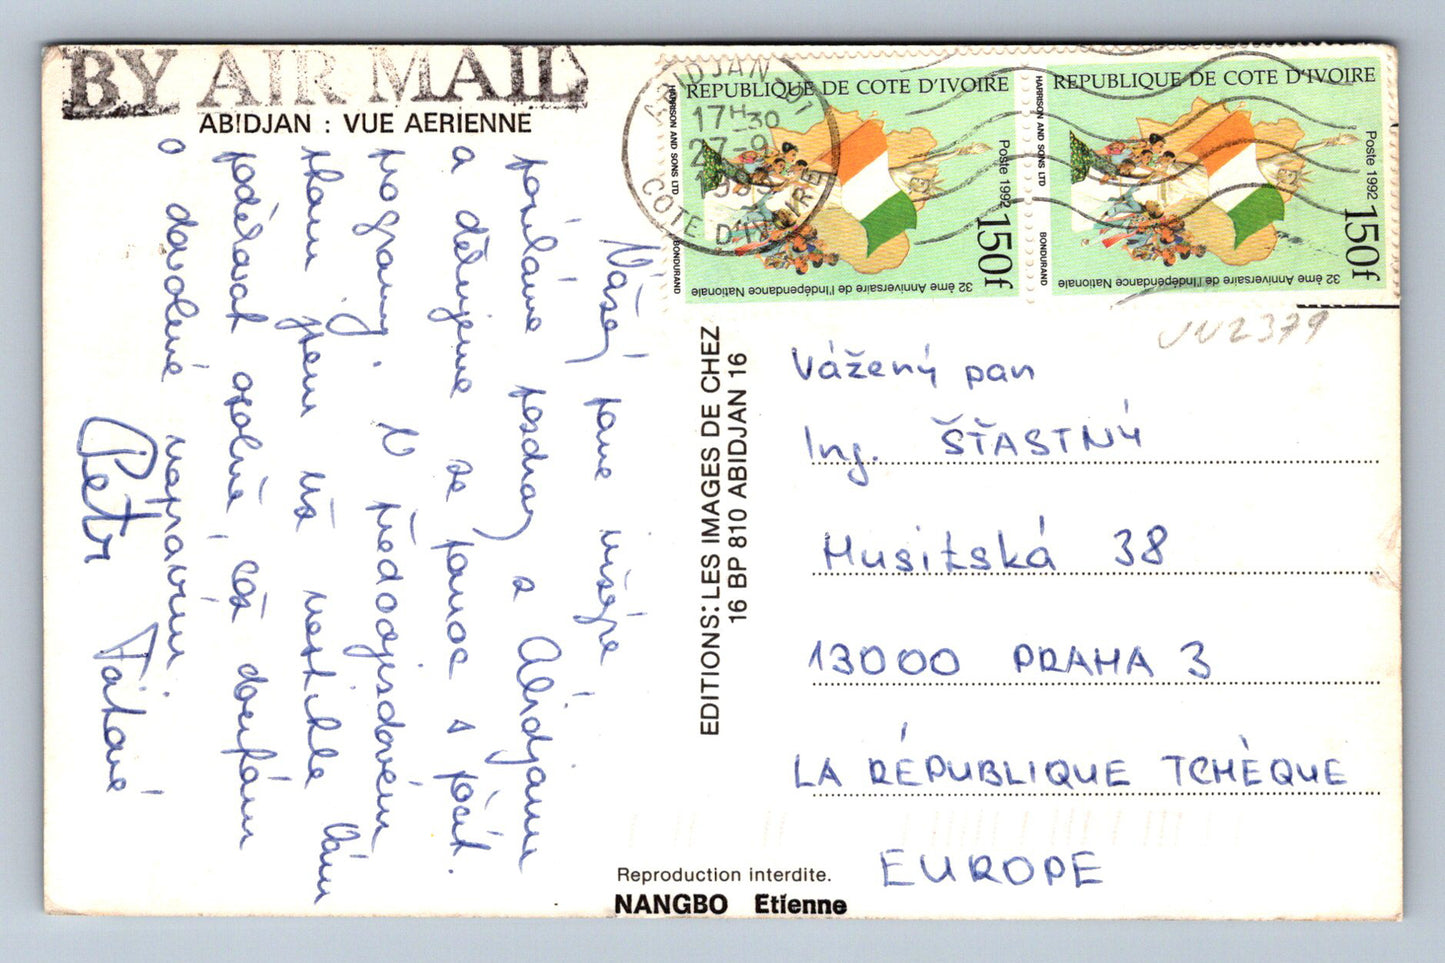 BY AIR MAIL
ABIDJAN : VUE AERIENNE
Vážený pane inženýre
posíláme pozdrav z Abidjanu
a děkujeme za pomoc s počít.
programy. V předodjezdovém
jsem už nestihla Vám
poděkovat osobně, což doufám
o dovolené napravím
Petr Fátová
EDITIONS: LES IMAGES DE CHEZ
16 BP 810 ABIDJAN 16
Reproduction interdite.
NANGBO Etienne
ABIDJAN 01
17H-30
27-9
COTE D'IVOIRE
REPUBLIQUE DE COTE D'IVOIRE
HARRISON AND SONS LTD
BONDURAND
Poste 1992
150f
32 ème Anniversaire de l'Indépendance Nationale
REPUBLIQUE DE COTE D'IVOIRE
HARRISON AND SONS LTD
BONDURAND
Poste 1992
150f
32 ème Anniversaire de l'Indépendance Nationale
2379
Vážený pan
Ing. ŠŤASTNÝ
Husitská 38
13000 PRAHA 3
LA RÉPUBLIQUE TCHÈQUE
EUROPE